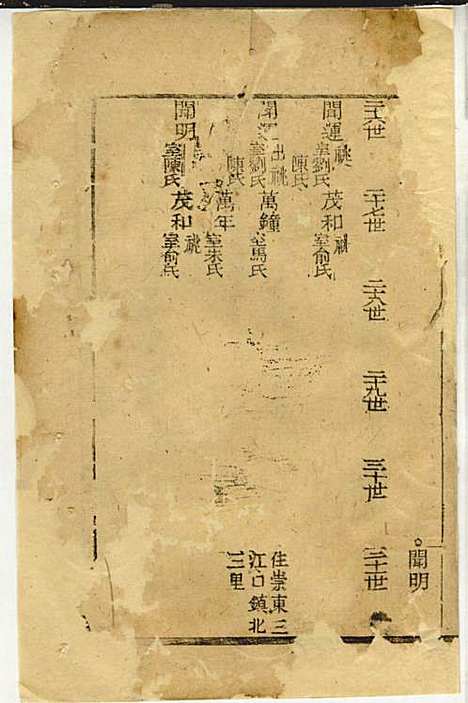 聞明
二十六世
二十七世
二十八世
二十九世
三十世
三十一世
聞運 祧
室劉氏
陳氏
茂和 祧
室俞氏
聞
出祧
室劉氏
陳氏
萬鐘
室馬氏
萬年
室朱氏
聞明
室陳氏
茂和 祧
室俞氏
住崇東三
江口鎮北
三里